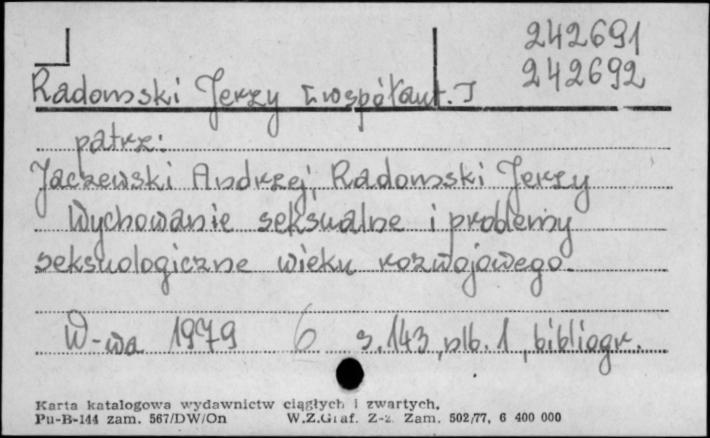 242691
242692
Radomski Jerzy [współaut.]
patrz:
Jaczewski Andrzej, Radomski Jerzy
Wychowanie seksualne i problemy
seksuologiczne wieku rozwojowego.
W-wa 1979 6 s. 143, nlb. 1, bibliogr.
Karta katalogowa wydawnictw ciągłych i zwartych.
Pu-B-144 zam. 567/DW/On W.Z.Graf. Z-z. Zam. 502/77, 6 400 000